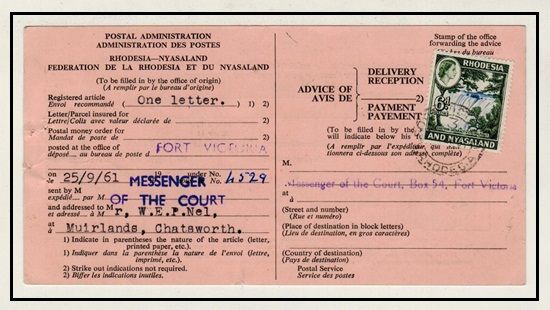 POSTAL ADMINISTRATION
ADMINISTRATION DES POSTES
RHODESIA—NYASALAND
FEDERATION DE LA RHODESIA ET DU NYASALAND
(To be filled in by the office of origin)
(A remplir par le bureau d'origine)
Registered article
Envoi recommandé ( One letter. ) 1) 2)
Letter/Parcel insured for
Lettre/Colis avec valeur déclarée de 2)
Postal money order for
Mandat de poste de 2)
posted at the office of
déposé au bureau de poste d FORT VICTORIA
on
le 25/9/61 19 under No.
No. 4529
MESSENGER
sent by M
expédié par M. OF THE COURT
and addressed to M
et adressé à M r, W.E.P.Nel,
at
à Muirlands, Chatsworth.
1) Indicate in parentheses the nature of the article (letter,
printed paper, etc.).
1) Indiquer dans la parenthèse la nature de l'envoi (lettre,
imprimé, etc.).
2) Strike out indications not required.
2) Biffer les indications inutiles.
Stamp of the office
forwarding the advice
du bureau
ADVICE OF
AVIS DE
DELIVERY
RECEPTION 2)
PAYMENT
PAYEMENT 2)
(To be filled in by the
will indicate below his
(A remplir par l'expéditeur qui
tionnera ci-dessous son adresse
M.
Messenger of the Court, Box 54, Fort Victoria
at
à
(Street and number)
(Rue et numéro)
(Place of destination in block letters)
(Lieu de destination, en gros caractères)
(Country of destination)
(Pays de destination)
Postal Service
Service des postes
RHODESIA
6d
AND NYASALAND